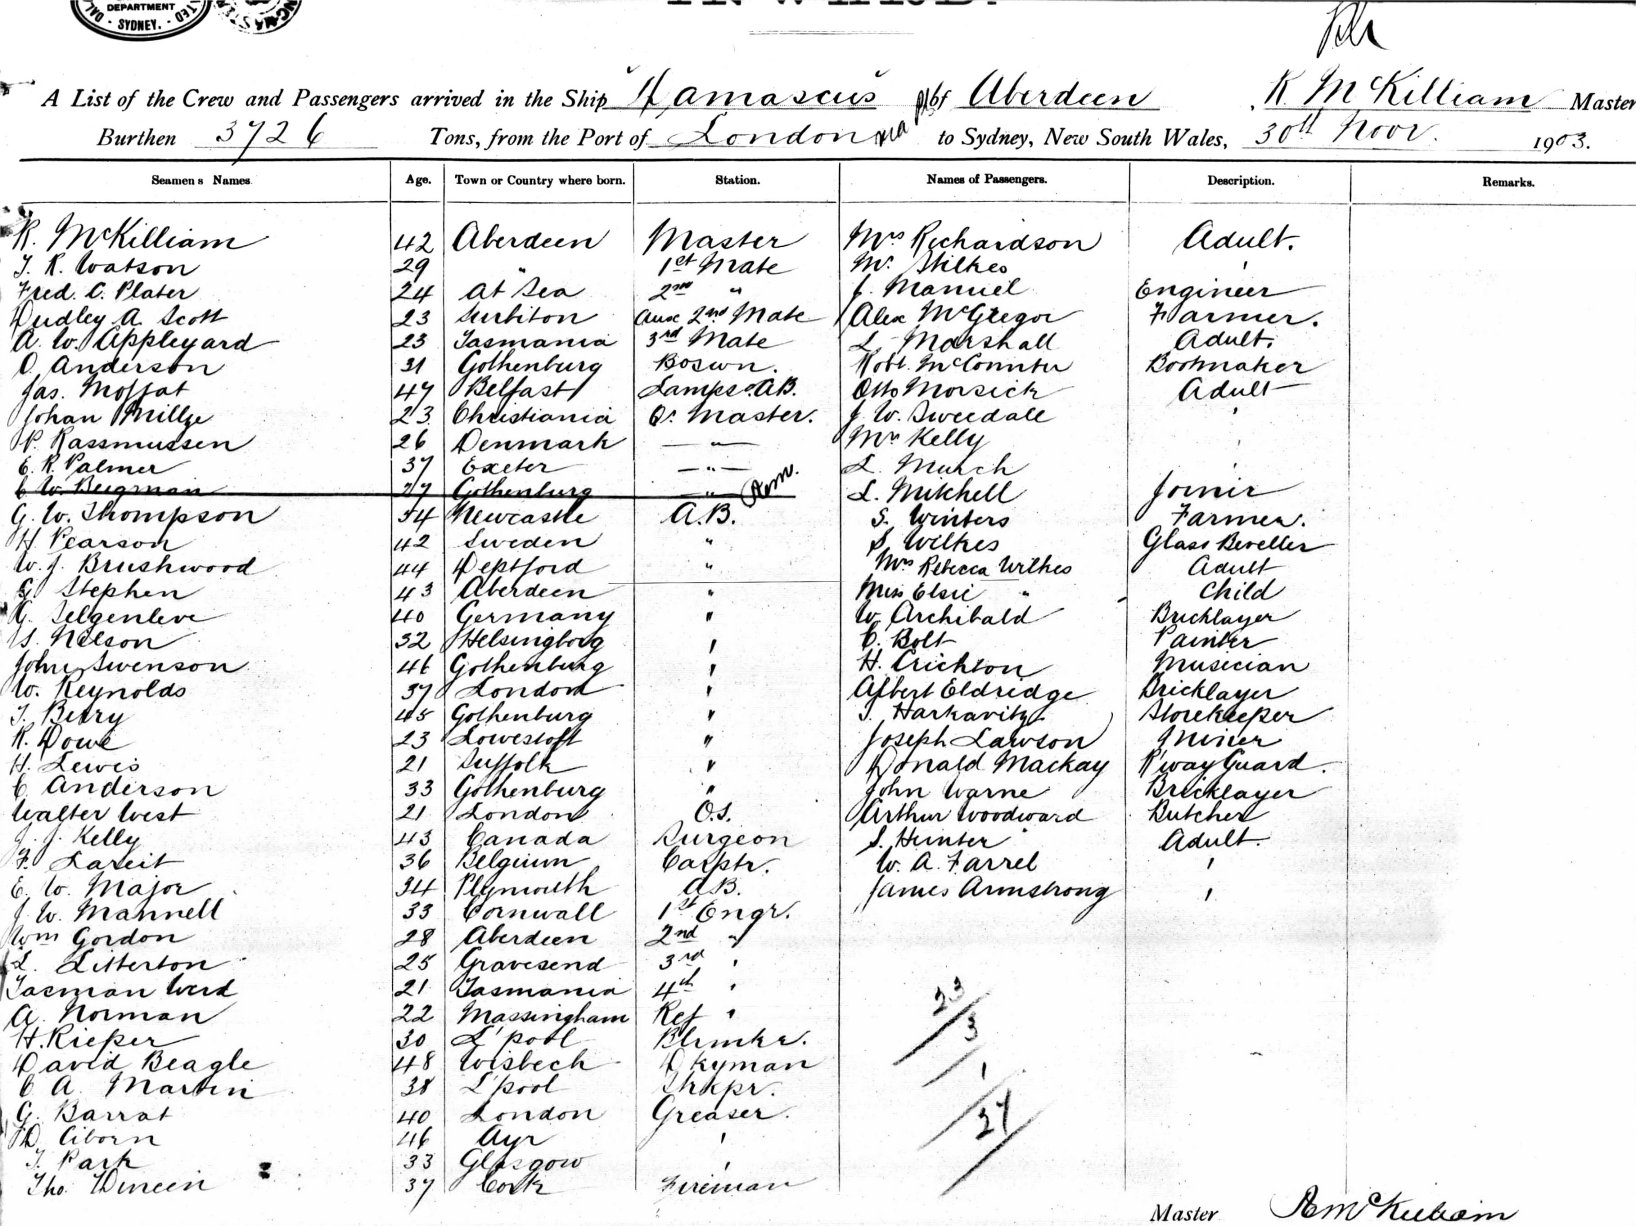 DEPARTMENT
SYDNEY.
INWARD.
A List of the Crew and Passengers arrived in the Ship "Damascus" of Aberdeen R McKilliam Master
Burthen 3726 Tons, from the Port of London via to Sydney, New South Wales, 30th Novr. 1903.
Seamens Names. Age. Town or Country where born. Station. Names of Passengers. Description. Remarks.
R. McKilliam 42 Aberdeen Master Mrs Richardson Adult.
T. R. Watson 29 " 1st Mate Mr. Stilkes '
Fred. C. Plater 24 At Sea 2nd " J. Manuel Engineer
Dudley A. Scott 23 Surbiton Aux 2nd Mate Alex McGregor Farmer.
A. W. Appleyard 23 Tasmania 3rd Mate L. Marshall Adult.
O. Anderson 31 Gothenburg Boswn. Robt. Bootmaker
Jas. Moffat 47 Belfast Lamps & A.B. Otto Morsick Adult
Johan Millge 23 Christiania Qr. Master. J. W. Sweedale '
P. Rassmussen 26 Denmark — " — Mrs Kelly '
C. R. Palmer 37 Exeter — " — L. Murch '
C W. Bergman 27 Gothenburg — " — L. Mitchell Joiner
G. W. Thompson 54 Newcastle A.B. S. Winters Farmer.
H Pearson 42 Sweden " S. Wilkes Glass Beveller
W. J. Brushwood 44 Deptford " Mrs Rebecca Wilkes Adult
G. Stephen 43 Aberdeen " Miss Elsie " Child
G. Selgenleve 40 Germany " W. Archibald Bricklayer
S. Nelson 32 Helsingborg " C. Bolt Painter
John Swenson 46 Gothenburg " H. Crichton Musician
W. Reynolds 37 London " Albert Eldridge Bricklayer
T. Berry 45 Gothenburg " I. Harkavitz Storekeeper
R. Dowe 23 Lowestoft " Joseph Lawson Miner
H. Lewis 21 Suffolk " Donald Mackay R'way Guard.
C. Anderson 33 Gothenburg " John Warne Bricklayer
Walter West 21 London O.S. Arthur Woodward Butcher
J. J. Kelly 43 Canada Surgeon S. Hunter Adult.
F. Lareit 36 Belgium Carptr. W. A. Farrel '
E. W. Major 34 Plymouth A.B. James Armstrong '
J. W. Mannell 33 Cornwall 1st Engr.
Wm Gordon 28 Aberdeen 2nd "
L. Litterton 25 Gravesend 3rd "
Tasman Ward 21 Tasmania 4th "
A. Norman 22 Massingham Ref "
H. Rieper 30 L'pool Blrmkr.
David Beagle 48 Wisbech Dkyman
C A. Martin 38 L'pool Strkpr.
G. Barrat 40 London Greaser.
D. Ciborn 46 Ayr '
T. Park 33 Glasgow '
Tho. Dineen 37 Cork Fireman
23/3/1
27
Master R McKilliam